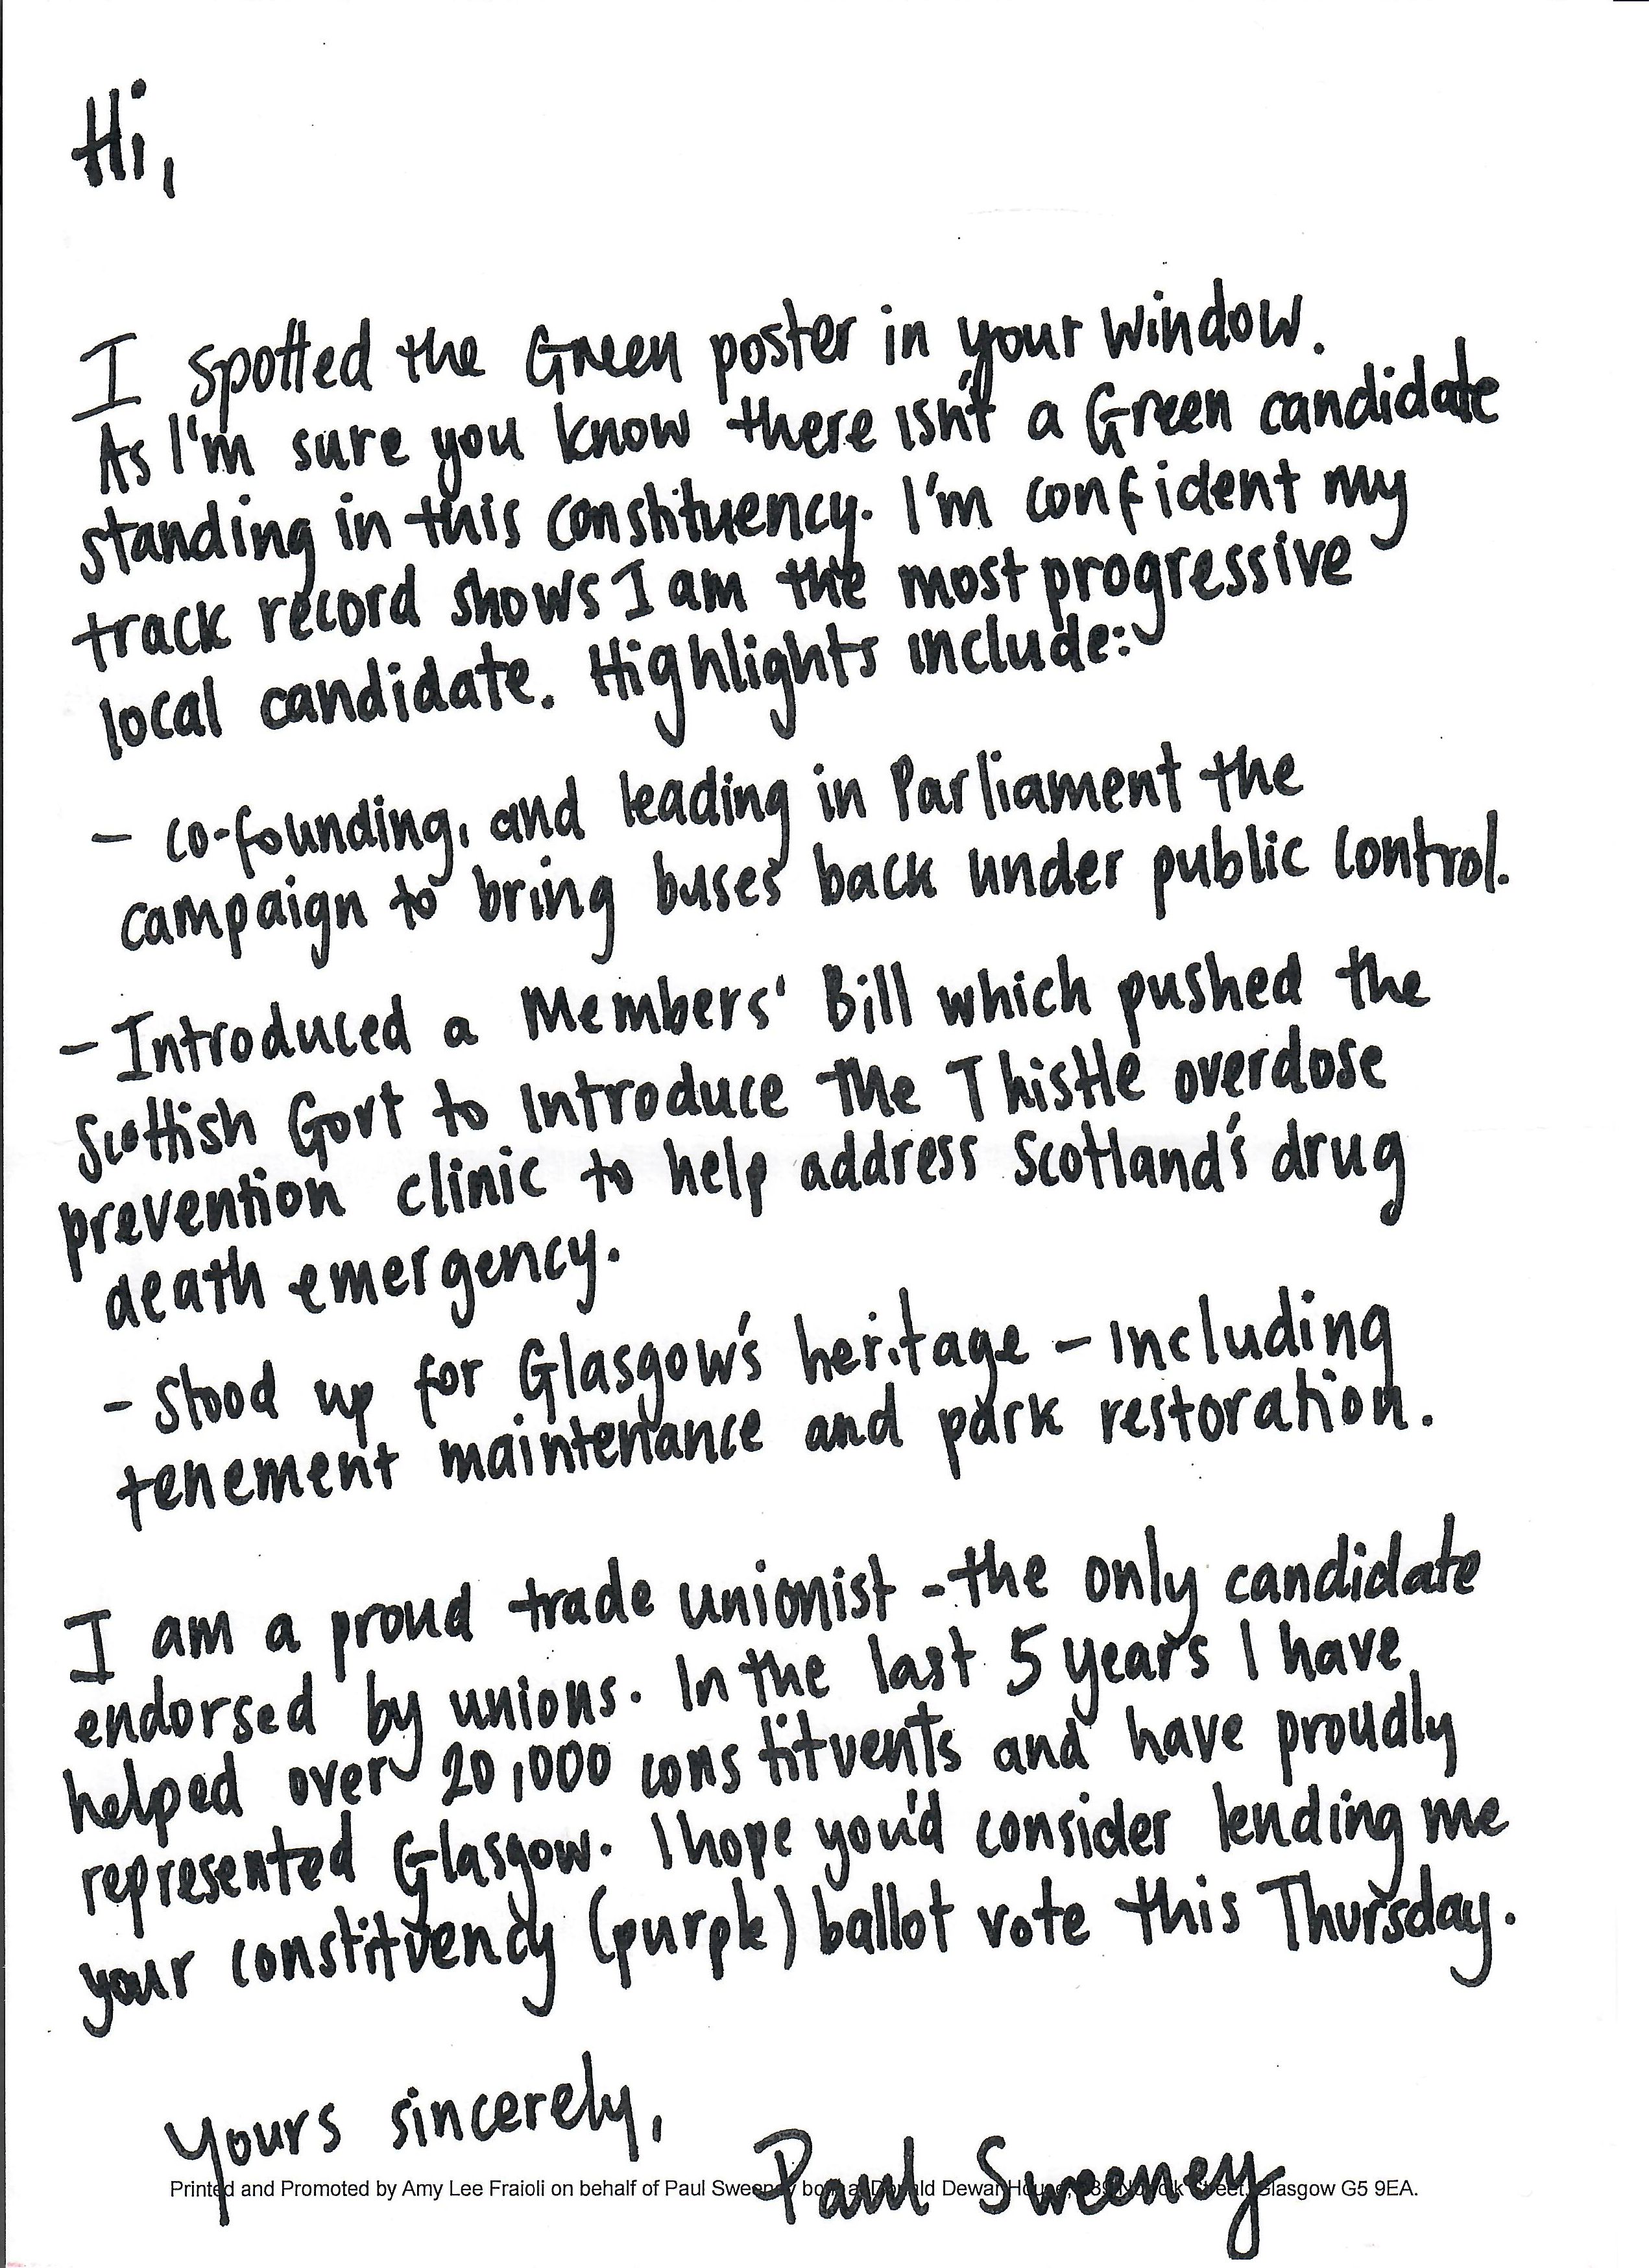 Hi,
I spotted the Green poster in your window.
As I'm sure you know there isn't a Green candidate
standing in this constituency. I'm confident my
track record shows I am the most progressive
local candidate. Highlights include:
- co-founding, and leading in Parliament the
campaign to bring buses back under public control.
- Introduced a Members' Bill which pushed the
Scottish Govt to introduce the Thistle overdose
prevention clinic to help address Scotland's drug
death emergency.
- Stood up for Glasgow's heritage - including
tenement maintenance and park restoration.
I am a proud trade unionist - the only candidate
endorsed by unions. In the last 5 years I have
helped over 20,000 constituents and have proudly
represented Glasgow. I hope you'd consider lending me
your constituency (purple) ballot vote this Thursday.
Yours sincerely,
Paul Sweeney
Printed and Promoted by Amy Lee Fraioli on behalf of Paul Sweeney both at Donald Dewar House, Norfolk Street, Glasgow G5 9EA.